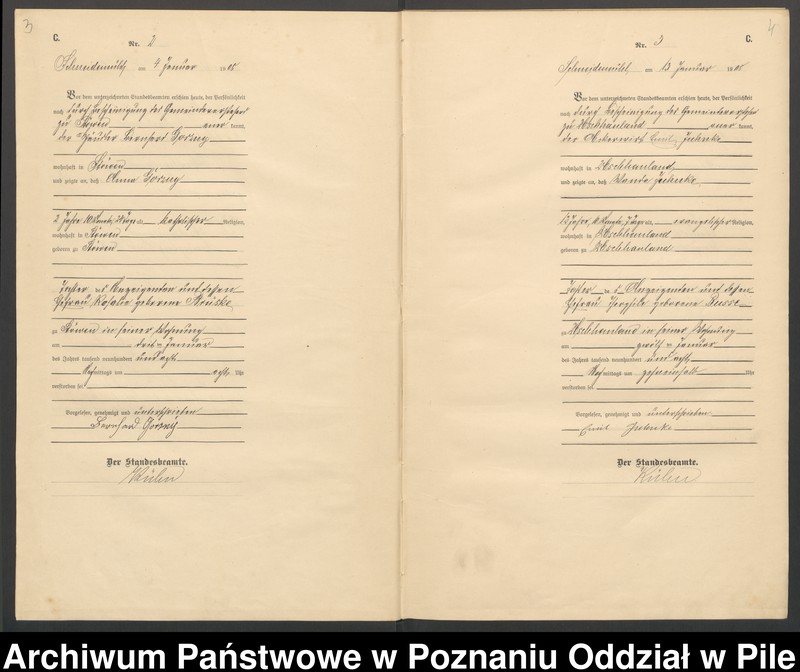 3
C.
Nr. 2
Schneidemühl am 4 Januar 1908
Vor dem unterzeichneten Standesbeamten erschien heute, der Persönlichkeit
nach durch Bescheinigung des Gemeindevorstehers
zu Stöwen anerkannt,
der Häusler Bernhard Gorzny
wohnhaft in Stöwen
und zeigte an, daß Anna Gorzny
2 Jahre 10 Monate, Tage alt, katholischer Religion,
wohnhaft in Stöwen
geboren zu Stöwen
Tochter des Anzeigenden und dessen
Ehefrau Rosalie geborene
zu Stöwen in seiner Wohnung
am drei ten Januar
des Jahres tausend neunhundert und acht
Nachmittags um acht Uhr
verstorben sei.
Vorgelesen, genehmigt und unterschrieben
Bernhard Gorzny
Der Standesbeamte.
4
C.
Nr. 3
Schneidemühl am 13 Januar 1908
Vor dem unterzeichneten Standesbeamten erschien heute, der Persönlichkeit
nach durch Bescheinigung des Gemeindevorstehers
zu anerkannt,
der Ackerwirt Emil
wohnhaft in
und zeigte an, daß Wanda
Jahre, Monate, Tage alt, evangelischer Religion,
wohnhaft in
geboren zu
Tochter des Anzeigenden und dessen
Ehefrau geborene Busse
zu in seiner Wohnung
am zwölf ten Januar
des Jahres tausend neunhundert und acht
Nachmittags um zehneinhalb Uhr
verstorben sei.
Vorgelesen, genehmigt und unterschrieben
Emil
Der Standesbeamte.
Archiwum Państwowe w Poznaniu Oddział w Pile